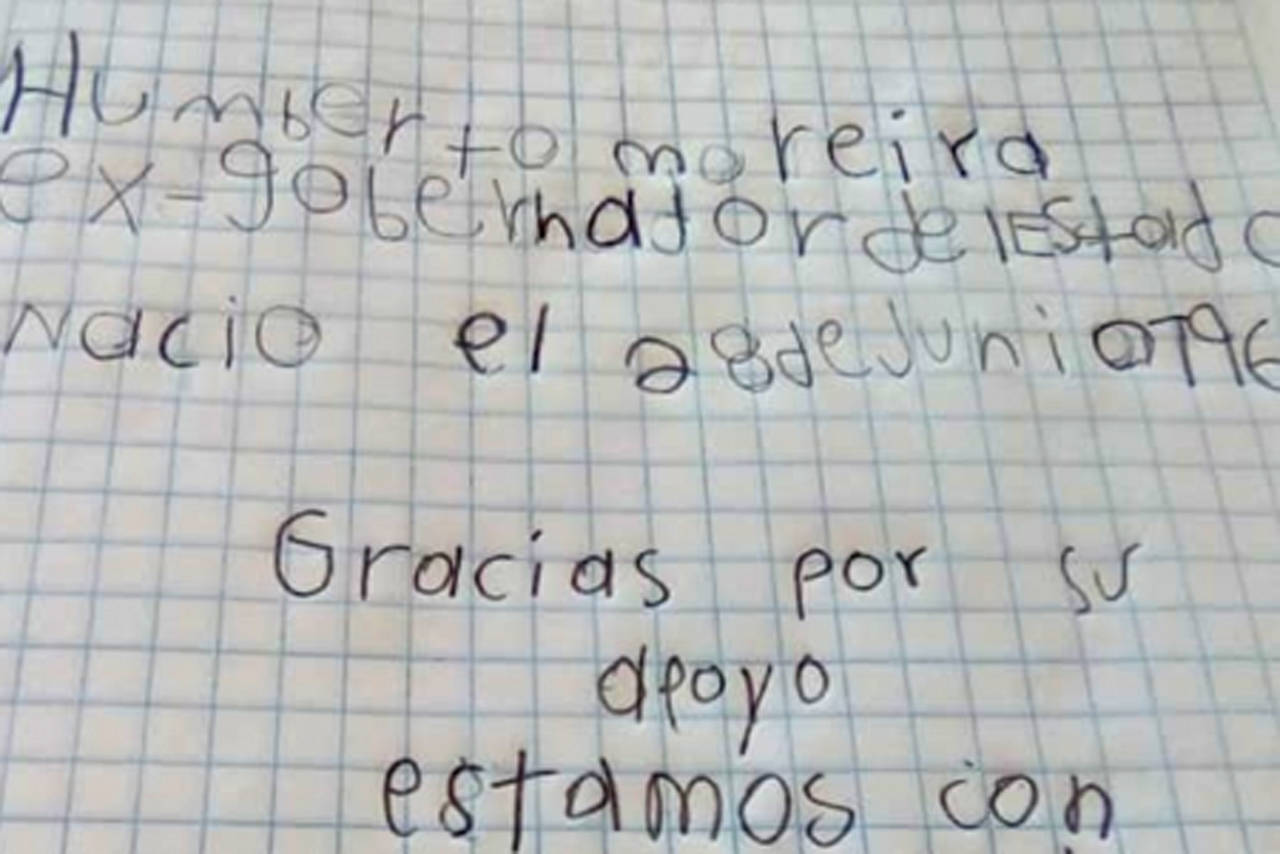 Humberto moreira
ex-gobernador del Estado
Nacio el 28 de Junio 196
Gracias por su
apoyo
estamos con